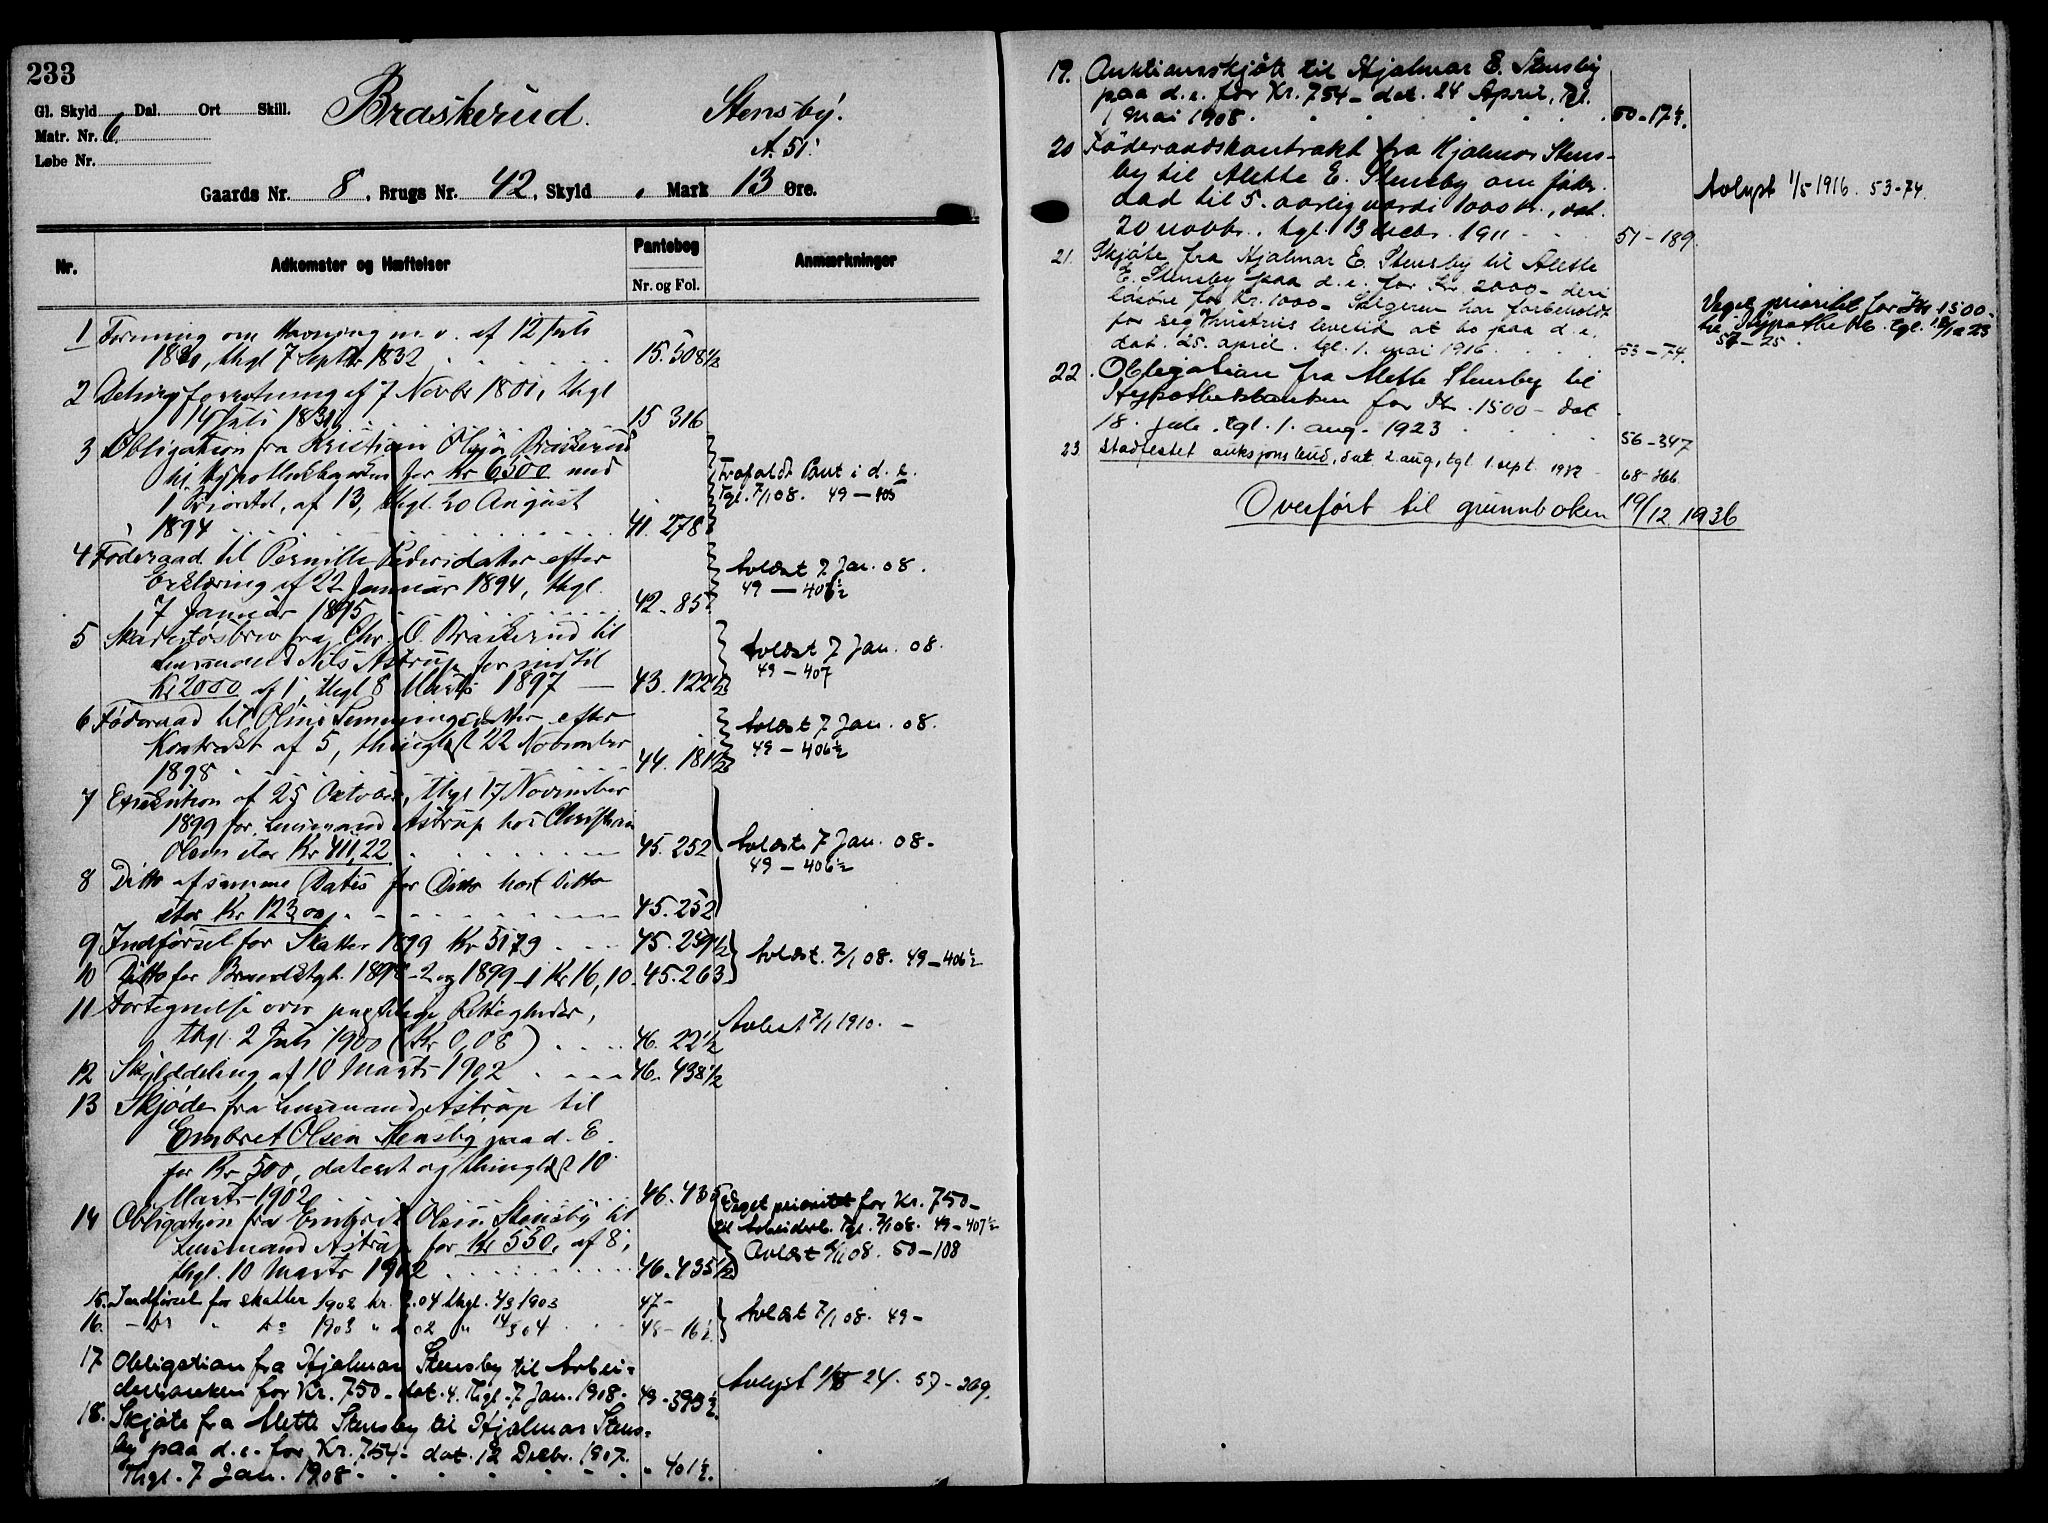 233
Gl. Skyld Dal. Ort Skill.
Matr. Nr. 6
Løbe Nr.
Braskerud. Stensby.
A. 51.
Gaards Nr. 8, Brugs Nr. 42, Skyld , Mark 13 Øre.
Nr. Adkomster og Hæftelser Pantebog Nr. og Fol. Anmærkninger
1 Forening om Havning m. v. af 12 Juli
1830, thgl 7 Septbr 1832 15. 508 1/2
2 7 Novbr 1801, thgl
14 Juli 1830 15 316
3 Obligation fra Kristian Olsen Braskerud
til Hypothekbanken for Kr 6500 med
1 Prioritet, af 13, thgl. 20 August
1894 41. 278
Frafaldt Pant i d. e.
Tgl. 7/1 08. 49 — 405
4 Føderaad til Pernille Pedersdatter efter
Erklæring af 22 Januar 1894, thgl.
7 Januar 1895 42. 85
Avlæst 7 Jan. 08.
49 — 406 1/2
5 Skadesløsbrev fra Chr. O. Braskerud til
Lensmand Nils Astrup for indtil
Kr 2000 af 1, thgl 8 Marts 1897 — 43. 122 1/2
Avlæst 7 Jan. 08.
49 — 407
6 Føderaad til Oline Semmingsdatter efter
Kontrakt af 5, thinglæst 22 November
1898 44. 181 1/2
Avlæst 7 Jan. 08.
49 — 406 1/2
7 Exekution af 25 Oktober, thgl 17 November
1899 for Lensmand Astrup hos Christian
Olsen stor Kr 411,22 45. 252
Avlæste 7 Jan. 08.
49 — 406 1/2
8 Ditto af samme Datis for Ditto hos Ditto
stor Kr 123,00 45. 252
9 Indførsel for Skatter 1899 Kr 5179 45. 259 1/2
10 Ditto for Brandktgt. 1898-2 og 1899-1 Kr 16,10 45. 263
Avlæst. 7/1 08. 49 — 406 1/2
11 Fortegnelse over pligtige Rettigheder,
thgl. 2 Juli 1900 (Kr 0,08) 46. 22 1/2
Avlæst 7/1 1910.
12 Skylddeling af 10 Marts 1902 46. 438 1/2
13 Skjøde fra Lensmand Astrup til
Embret Olsen Stensby paa d. E.
for Kr 500, dateret og thinglæst 10
Marts 1902 46. 435
14 Obligation fra Embret Olsen Stensby til
Lensmand Astrup for Kr 550, af 8,
thgl. 10 Marts 1902 46. 435 1/2
Veget prioritet for Kr. 750-
til Arbeiderb. Tgl. 7/1 08. 49-407 1/2
Avlæst 08. 50—108
15. Indførsel for skatter 1902 kr. 2.04 thgl. 4/3 1903 47-
16. — do " do 1903 " 2 02 " 14/3 04 48-16 1/2
Avlæst 7/1 08. 49-
17 Obligation fra Hjalmar Stensby til Arbei=
derbanken for Kr. 750- dat. 4. Thgl. 7 Jan. 1908. 49-393 1/2
Avlyst 24. 57-269.
18. Skjøte fra Alette Stensby til Hjalmar Stens=
by paa d. e. for Kr. 754- dat. 12 Decbr. 1907.
Thgl. 7 Jan. 1908 " 401 1/2.
19. Auktionsskjøte til Hjalmar E. Stensby
paa d. e. for Kr. 754- dat. 24 April, tgl.
1 Mai 1908. 50-17 1/2.
20 Føderaadskontrakt fra Hjalmar Stens-
by til Alette E. Stensby om føde-
raad til 5. aarlig værdi 1000 Kr., dat.
20 novbr., tgl. 13 decbr. 1911 51-189.
Avlyst 1/5 1916. 53-74.
21. Skjøte fra Hjalmar E. Stensby til Alette
E. Stensby paa d. e. for Kr. 2000- deri
løsøre for Kr. 1000- Sælgeren har forbeholdt
for sig Hustrus levetid at bo paa d. e.
dat. 25. april. tgl. 1. mai 1916 53-74.
Veget prioritet for Kr 1500-
til Hypothekb. tgl. 23
57-25.
22. Obligation fra Alette Stensby til
Hypothekbanken for Kr. 1500- dat
18. juli. tgl. 1. aug. 1923 56-347
23 Stadfestet auksjonsbud, dat 2. aug, tgl. 1. sept 1932 68-
Overført til grunnboken 19/12 1936